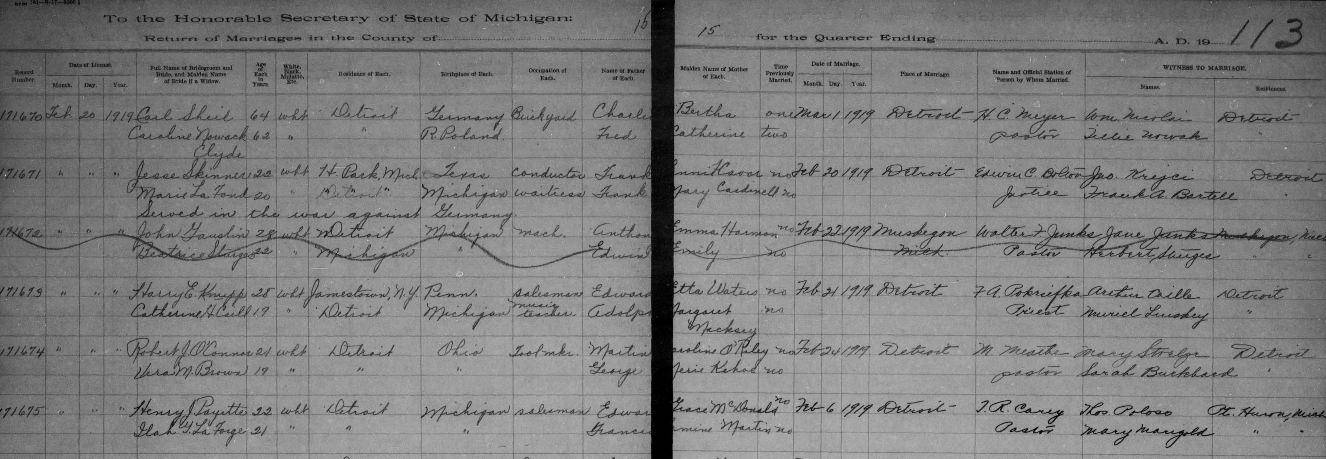 To the Honorable Secretary of State of Michigan:
Return of Marriages in the County of
15
15
for the Quarter Ending
A. D. 19
113
Record Number. Date of License. Month. Day. Year. Full Name of Bridegroom and Bride, and Maiden Name of Bride if a Widow. Age of Each in Years White, Black, Mulatto, Etc. Residence of Each. Birthplace of Each. Occupation of Each. Name of Father of Each. Maiden Name of Mother of Each. Time Previously Married. Date of Marriage. Month. Day. Year. Place of Marriage. Name and Official Station of Person by Whom Married. WITNESS TO MARRIAGE. Names. Residences.
171670 Feb 20 1919 Carl Sheil 64 wht Detroit Germany Brickyard Charle Bertha one Mar 1 1919 Detroit H. C. Meyer Wm Nicolai Detroit
Caroline Nowack 62 " " R. Poland Fred Catherine two pastor Tillie Nowak "
Clyde
171671 " " " Jesse Skinner 22 wht H. Park, Mich Texas conductor Frank no Feb 20 1919 Detroit Edwin C. Bolton Jas. Krejci Detroit
Marie La Fond 20 " Detroit Michigan waitress Frank Mary Cardinell no Justice Frank A. Bartell "
Served in the war against Germany.
171672 " " " John Gauslin 28 wht Detroit Michigan mach. Anthon Emma Harmon no Feb 22 1919 Muskegon Walter F Junks Jane Junks Muskegon, Mich
Beatrice Sturges 22 " Michigan " Edwin Emily no Mich. Pastor Herbert Sturges " "
171673 " " " Harry E. Knipp 28 wht Jamestown, N.Y. Penn. salesman Edward Etta Waters no Feb 21 1919 Detroit F. A. Pokriefka Arthur Caille Detroit
Catherine H Caill 19 " Detroit Michigan music teacher Adolp Margaret no Priest Muriel Linskey "
Macksey
171674 " " " Robert J. O'Connor 21 wht Detroit Ohio Toolmkr. Martin Caroline O'Riley no Feb 24 1919 Detroit M. Meathe Mary Detroit
Vera M. Brown 19 " " " George Marie no pastor Sarah Burkhard "
171675 " " " Henry J Payette 22 wht Detroit Michigan salesman Edwar Grace McDonald no Feb 6 1919 Detroit T. R. Carey Thos Poloso Pt. Huron, Mich
Ilah G. La Forge 21 " " " Francis Martin no Pastor Mary Mangold " "